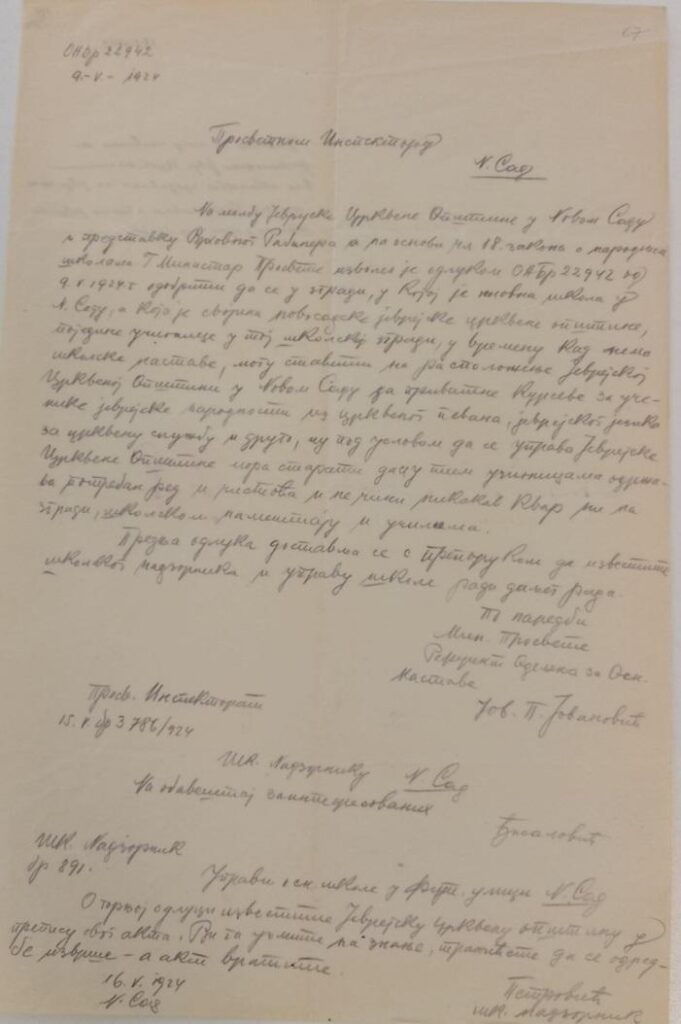 67
ОНбр 22942
9.-V.- 1924
Просветном Инспектору
Н. Сад
На молбу Јеврејске Црквене Општине у Новом Саду
и представку Врховног Рабинера а на основи чл 18. закона о народним
школама Г. Министар Просвете изволео је одлуком ОНБр 22942 од
9. V. 1924 г одобрити да се у згради, у којој је основна школа у
Н. Саду, а која је својина новосадске јеврејске црквене општине,
поједине учионице у тој школској згради, у времену кад нема
школске наставе, могу ставити на расположење Јеврејској
Црквеној Општини у Новом Саду за приватне курсеве за уче-
нике јеврејске народности из црквеног певања, јеврејског језика
за црквену службу и друго, ну под условом да се управа Јеврејске
Црквене Општине мора старати да се у тим учионицама одржа-
ва потребан ред и чистоћа и не чини никакав квар ни на
згради, школском намештају и училима.
Предња одлука доставља се с препоруком да известите
школског надзорника и управу школе ради даљег рада.
По наредби
Мин. Просвете
Референт Одељка за Осн.
Наставе
Јов. П. Јовановић
Просв. Инспекторат
15. V бр 3786/924
Шк. Надзорнику Н. Сад
На обавештај заинтересованих
Шк. Надзорник
бр 891.
Управи осн. школе у Фут. улици Н. Сад
О горњој одлуци известите Јеврејску црквену општину у
препису овог акта. Ви га узмите на знање, трошите да се одред-
бе изврше – а акт вратите.
16. V. 1924
Н. Сад
Петровић
шк. надзорник